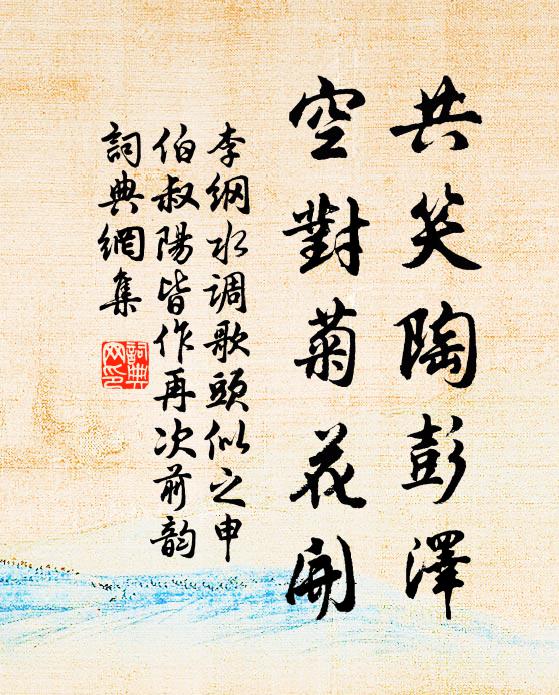 共笑陶彭澤
空對菊花開
李綱水调歌頭似之申
伯叔陽皆作再次前韵
詞典網集
詞典网印